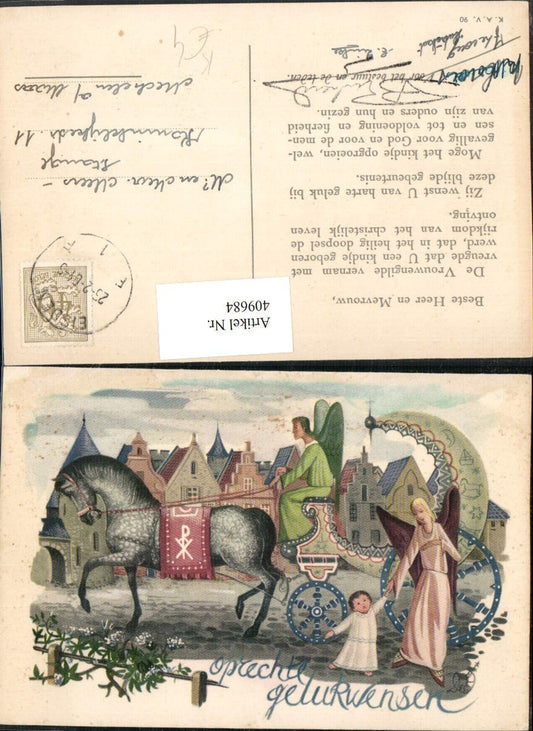 Beste Heer en Mevrouw,
De Vrouwengilde vernam met
vreugde dat U een kindje geboren
werd, dat in het heilig doopsel de
rijkdom van het christelijk leven
ontving.
Zij wenst U van harte geluk bij
deze blijde gebeurtenis.
Moge het kindje opgroeien, wel-
gevallig voor God en voor de men-
sen en tot voldoening en fierheid
van zijn ouders en hun gezin.
het bestuur en de leden.
K. A. V. 90
Mr en Mevr. Meers -
Mechelen a/ Maas
Artikel Nr.
409684
oprechte
gelukwensen